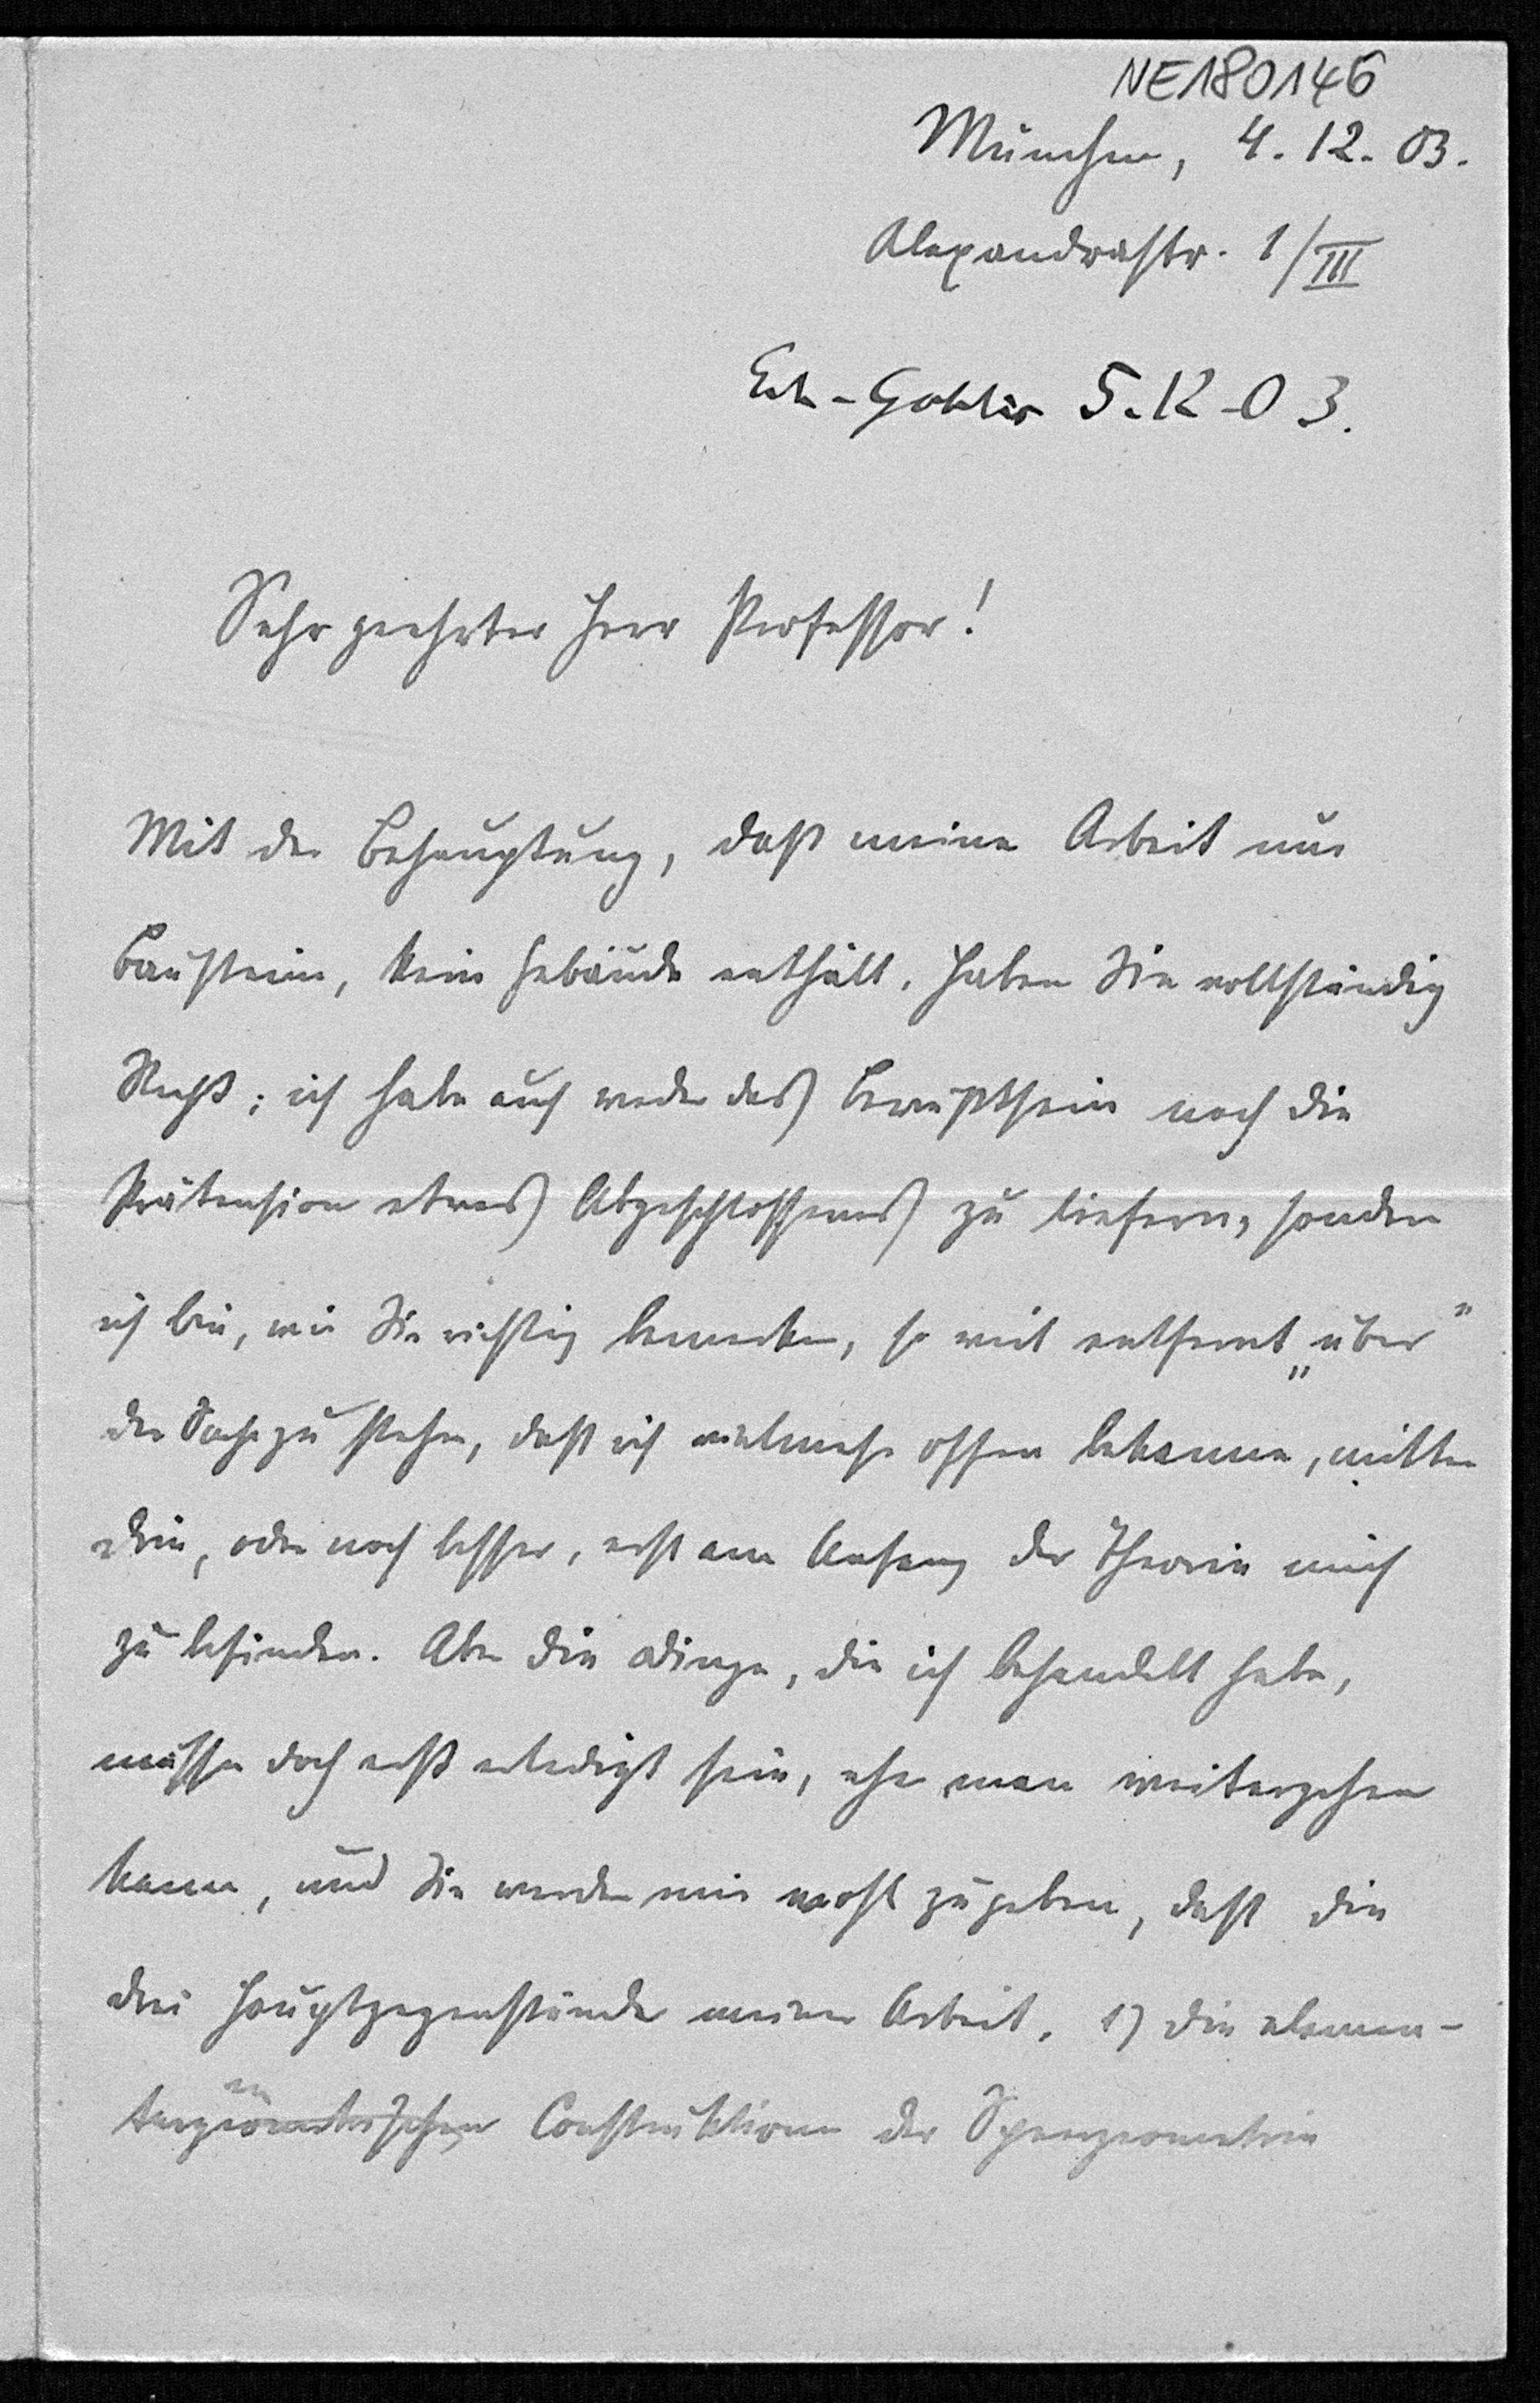 NE180146
München, 4. 12. 03.
Alexandrastr. 1/III
5. 12 - 03.
Sehr geehrter Herr Professor!
Mit der Behauptung, daß meine Arbeit nur
Bausteine, kein Gebäude enthält, haben Sie vollständig
Recht; ich habe auch weder das Bewußtsein noch die
Prätension etwas Abgeschlossenes zu liefern, sondern
ich bin, wie Sie richtig bemerken, so weit entfernt „über“
der Sache zu stehen, daß ich vielmehr offen bekenne, mitten
drin, oder noch besser, erst am Anfang der Theorie mich
zu befinden. Aber die Dinge, die ich behandelt habe,
müssen doch erst erledigt sein, ehe man weitergehen
kann, und Sie werden mir wohl zugeben, daß die
drei Hauptgegenstände meiner Arbeit, 1) die elemen-
Construktionen der